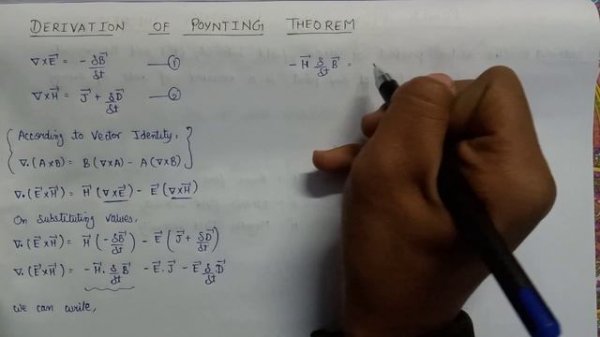 DERIVATION OF POYNTING THEOREM
∇×E⃗ = -δB⃗/δt —①
∇×H⃗ = J⃗ + δD⃗/δt —②
According to Vector Identity,
∇.(A×B) = B(∇×A) - A(∇×B)
∇.(E⃗×H⃗) = H⃗(∇×E⃗) - E⃗(∇×H⃗)
On substituting values,
∇.(E⃗×H⃗) = H⃗(-δB⃗/δt) - E⃗(J⃗ + δD⃗/δt)
∇.(E⃗×H⃗) = -H⃗.δ/δt B⃗ - E⃗.J⃗ - E⃗ δ/δt D⃗
we can write,
-H⃗ δ/δt B⃗ =